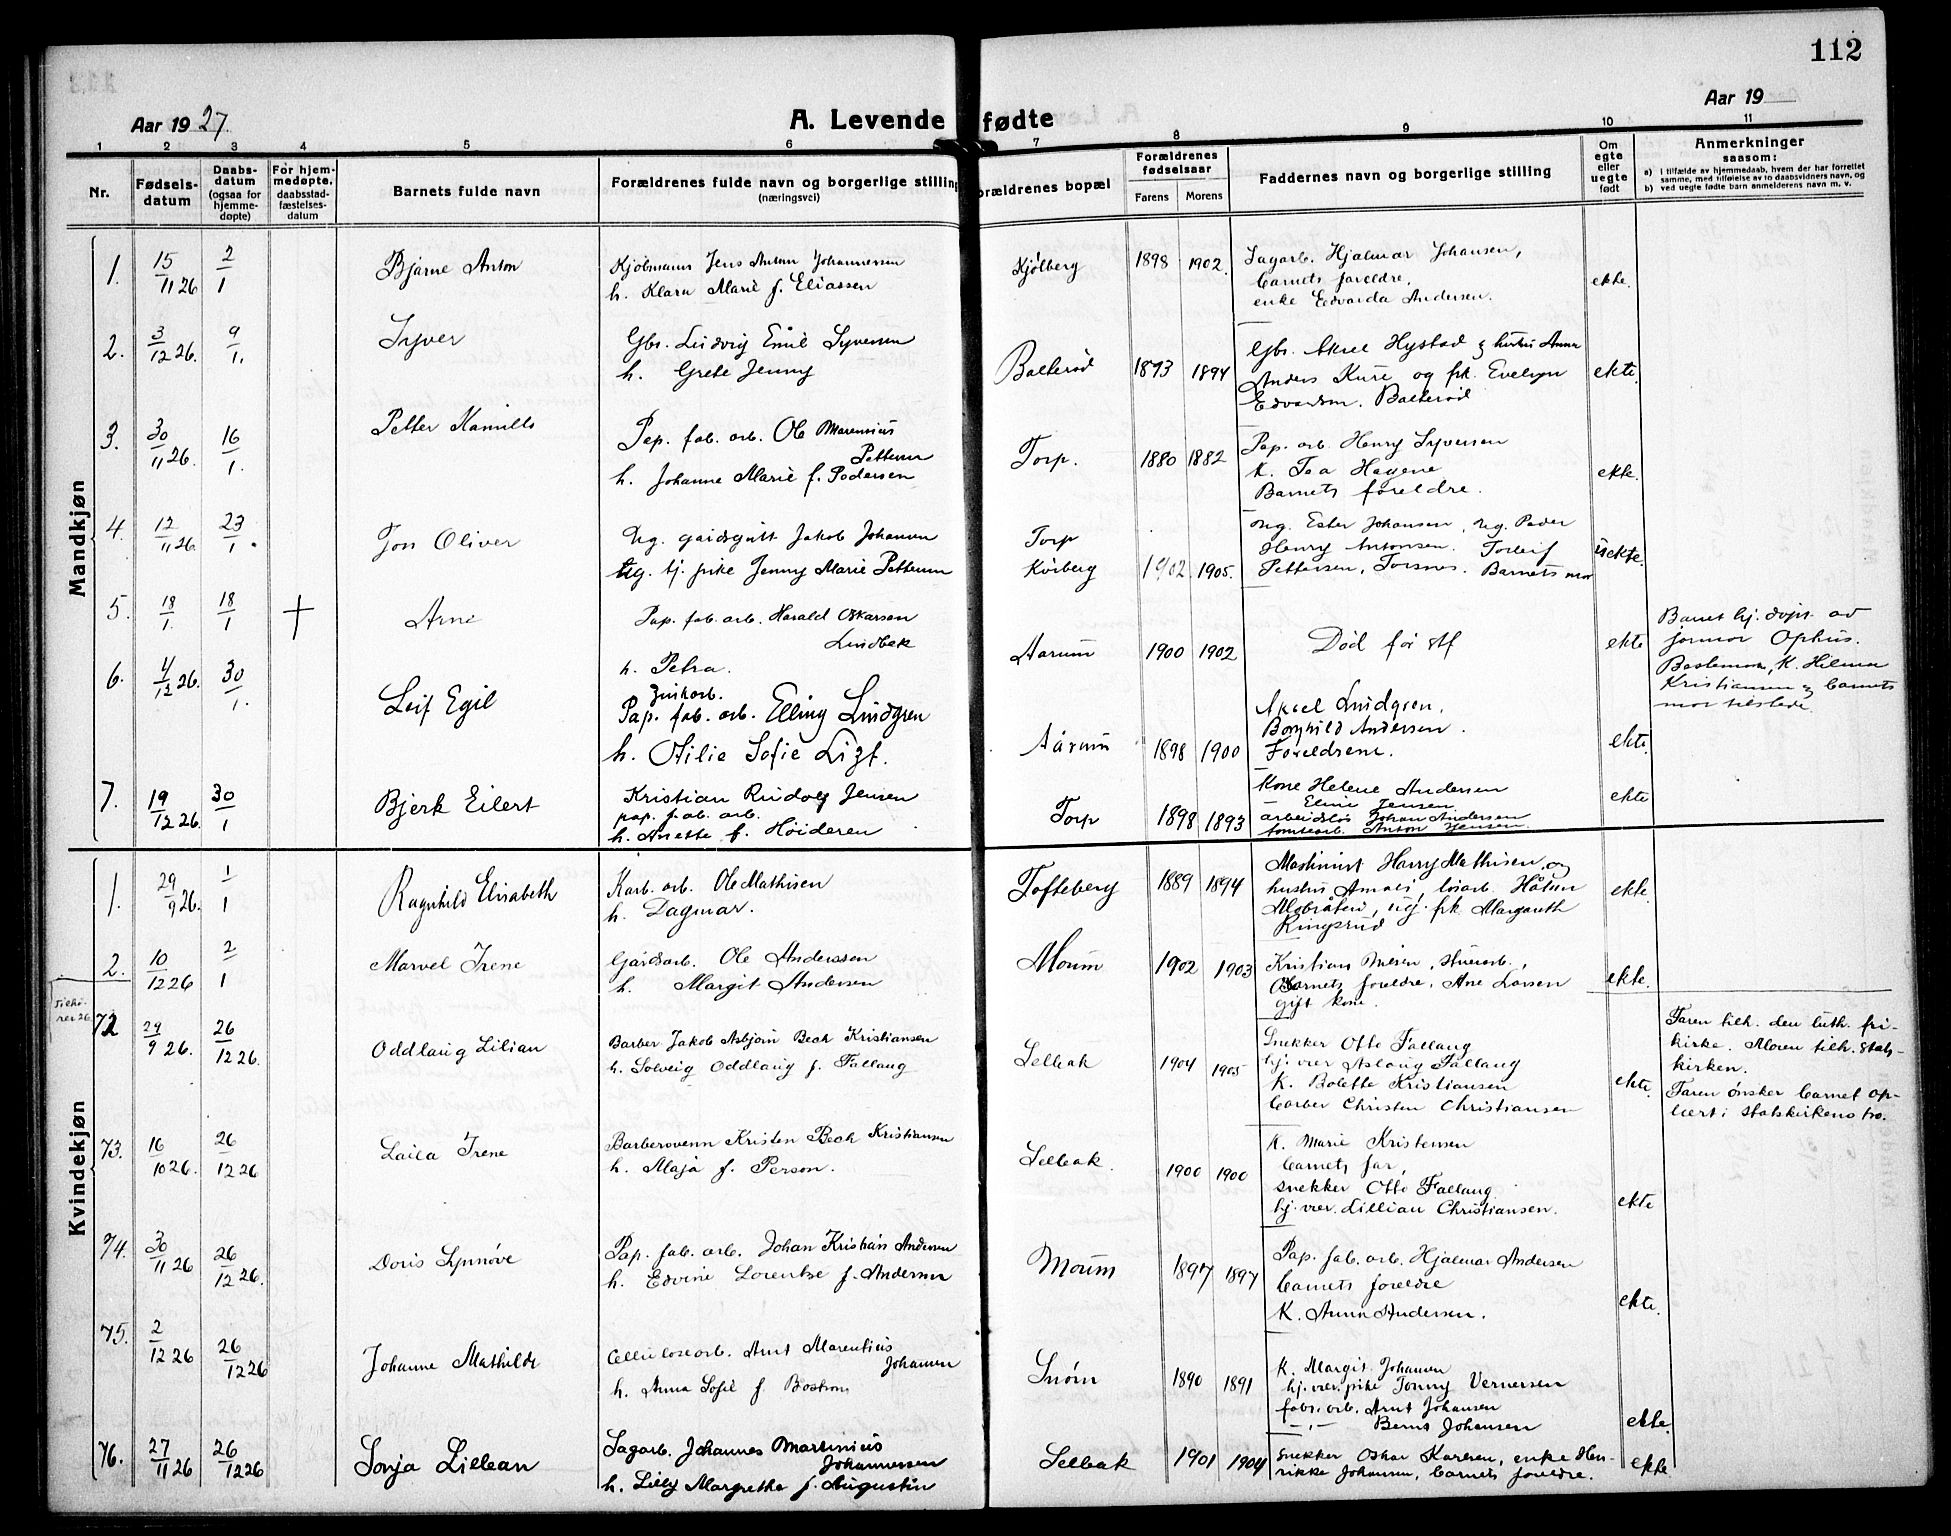 112
Aar 1927.
A. Levende fødte
Aar 19
1 2 3 4 5 6 7 8 9 10 11
Nr.
Fødsels-datum
Daabs-datum (ogsaa for hjemme-døpte)
For hjem-medøpte, daabsstad-fæstelses-datum
Barnets fulde navn
Forældrenes fulde navn og borgerlige stilling
(næringsvei)
Forældrenes bopæl
Forældrenes fødselsaar
Farens Morens
Faddernes navn og borgerlige stilling
Om egte eller uegte født
Anmerkninger
saasom:
a) i tilfælde av hjemmedaab, hvem der har forrettet samme, med tilføielse av to daabsvidners navn, og
b) ved uegte fødte barn anmelderens navn m. v.
Mandkjøn
1. 15/11 26 2/1 Bjarne Anton
Kjøbmann Jens Anton Johannessen
h. Klara Marie f. Eliassen
Kjølberg 1898 1902.
Sagarb. Hjalmar Johansen,
barnets foreldre,
enke Edvarda Andersen.
ekte.
2. 3/12 26. 9/1. Syver
Gbr. Ludvig Emil Syversen
h. Grete Jenny
Balterød 1893 1894
Gbr. Aksel Hystad og hustru Anna
Anders Kure og frk. Evelyn
Edvardsen. Balterød
ekte.
3. 30/11 26. 16/1. Petter Kamillo
Pap. fab. arb. Ole Marensius
Pettersen
h. Johanne Marie f. Pedersen
Torp. 1880 1882
Pap. arb. Henry Syversen
K. Taa Hagene
Barnets foreldre.
ekte.
4. 12/11 26. 23/1. Jon Oliver
Ug. gårdsgutt Jakob Johansen
Ug. tj. pike Jenny Marie Pettersen
Torp
Kirberg 1902 1905.
Ug. Ester Johansen, ug. Peder
Henry Antonsen. Torleif
Pettersen, Torsnes. Barnets mor
uekte.
5. 18/1. 18/1 † Arne
Pap. fab. arb. Harald Oskarson
Lundbek
h. Petra.
Aarum 1900 1902
Død før stf
ekte
Barnet hj. døpt av
jormor Ophus.
K. Hilma
Kristiansen og barnets
mor tilstede.
6. 4/12 26. 30/1. Leif Egil
Zinkarb.
Pap. fab. arb. Elling Lindgren
h. Otilie Sofie Lizt.
Aarum 1898 1900
Aksel Lindgren,
Borghild Andersen.
Foreldrene.
ekte.
7. 19/12 26. 30/1 Bjerk Eilert
Kristian Rudolf Jensen
pap. fab. arb.
h. Anette f. Høideren
Torp 1898 1893
Kone Helene Andersen
Eline Jensen
arbeidsløs Johan Andersen
tomtearb. Anton Jensen.
ekte
Kvindekjøn
1. 29/9 26. 1/1 Ragnhild Elisabeth
Karb. arb. Ole Mathisen
h. Dagmar.
Tofteberg 1889 1894
Maskinist Harry Mathisen, og
hustru Amali, løsarb. Håkon
, ug. frk. Margareth
Ringsrud
ekte.
2. 10/12 26 2/1 Marvel Irene
Gårdsarb. Ole Anderssen
h. Margit Andersen
Moum 1902 1903
Kristian Nilsen, stuerarb.,
Barnets foreldre, Ane Larsen
gift kone.
ekte.
Tilhø-
rer 26.
72 29/9 26. 26/12 26. Oddlaug Lilian
Barber Jakob Asbjørn Bech Kristiansen
h. Solveig Oddlaug f. Fallang
Selbak 1904 1905
Snekker Otto Fallang
hj. vær. Aslaug Fallang
K. Bolette Kristiansen
barber Christen Christiansen
ekte.
Faren tilh. den luth. fri-
kirke. Moren tilh. stats-
kirken.
Faren ønsker barnet op-
lært i statskirkens tro.
73. 16/10 26. 26/12 26 Laila Irene
Barbersvenn Kristen Bech Kristiansen
h. Maja f. Person.
Selbak. 1900 1900
K. Marie Kristensen
barnets far,
snekker Otto Fallang
hj. vær. Lillian Christiansen.
ekte
74. 30/11 26 26/12 26. Doris Synnøve
Pap. fab. arb. Johan Kristian Andersen
h. Edvine Lorentse f. Andersen
Moum 1897 1897
Pap. fab. arb. Hjalmar Andersen
barnets foreldre
K. Anna Andersen.
ekte.
75. 2/12 26 26/12 26 Johanne Mathilde
Cellulosearb. Arnt Marentius
Johansen
h. Anna Sofie f. Bostrøm
Snøm 1890 1891
K. Margit Johansen
hj. vær. pike Jonny Vernersen
fabr. arb. Arnt Johansen
—"— Bernt Johansen
ekte.
76. 27/11 26 26/12 26 Sonja Lillean
Sagarb. Johannes Martinius
Johannessen
h. Lilly Margrethe f. Augustin
Selbak 1901 1904
snekker Oskar Karlsen, enke Hen-
rikke Johansen, barnets foreldre.
ekte